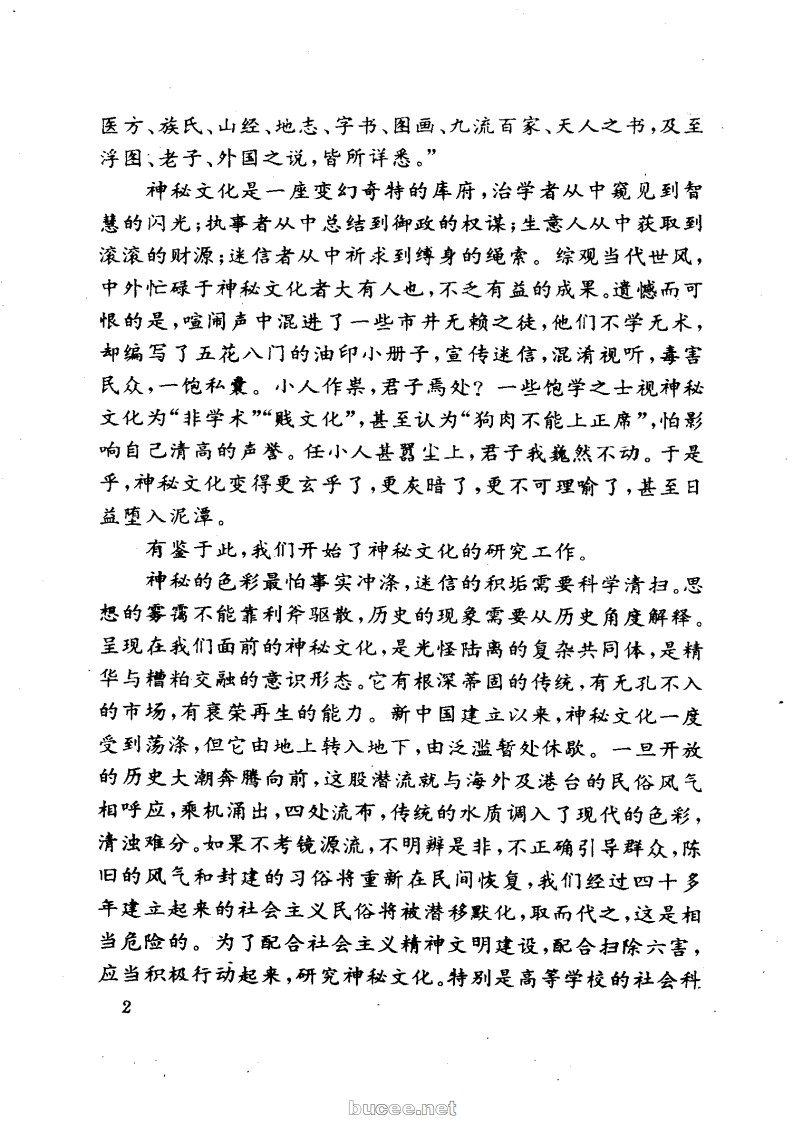 医方、族氏、山经、地志、字书、图画、九流百家、天人之书，及至
浮图、老子、外国之说，皆所详悉。”
神秘文化是一座变幻奇特的库府，治学者从中窥见到智
慧的闪光；执事者从中总结到御政的权谋；生意人从中获取到
滚滚的财源；迷信者从中祈求到缚身的绳索。综观当代世风，
中外忙碌于神秘文化者大有人也，不乏有益的成果。遗憾而可
恨的是，喧闹声中混进了一些市井无赖之徒，他们不学无术，
却编写了五花八门的油印小册子，宣传迷信，混淆视听，毒害
民众，一饱私囊。小人作祟，君子焉处？一些饱学之士视神秘
文化为“非学术”“贱文化”，甚至认为“狗肉不能上正席”，怕影
响自己清高的声誉。任小人甚嚣尘上，君子我巍然不动。于是
乎，神秘文化变得更玄乎了，更灰暗了，更不可理喻了，甚至日
益堕入泥潭。
有鉴于此，我们开始了神秘文化的研究工作。
神秘的色彩最怕事实冲涤，迷信的积垢需要科学清扫。思
想的雾霭不能靠利斧驱散，历史的现象需要从历史角度解释。
呈现在我们面前的神秘文化，是光怪陆离的复杂共同体，是精
华与糟粕交融的意识形态。它有根深蒂固的传统，有无孔不入
的市场，有衰荣再生的能力。新中国建立以来，神秘文化一度
受到荡涤，但它由地上转入地下，由泛滥暂处休歇。一旦开放
的历史大潮奔腾向前，这股潜流就与海外及港台的民俗风气
相呼应，乘机涌出，四处流布，传统的水质调入了现代的色彩，
清浊难分。如果不考镜源流，不明辨是非，不正确引导群众，陈
旧的风气和封建的习俗将重新在民间恢复，我们经过四十多
年建立起来的社会主义民俗将被潜移默化，取而代之，这是相
当危险的。为了配合社会主义精神文明建设，配合扫除六害，
应当积极行动起来，研究神秘文化。特别是高等学校的社会科
2
bucee.net